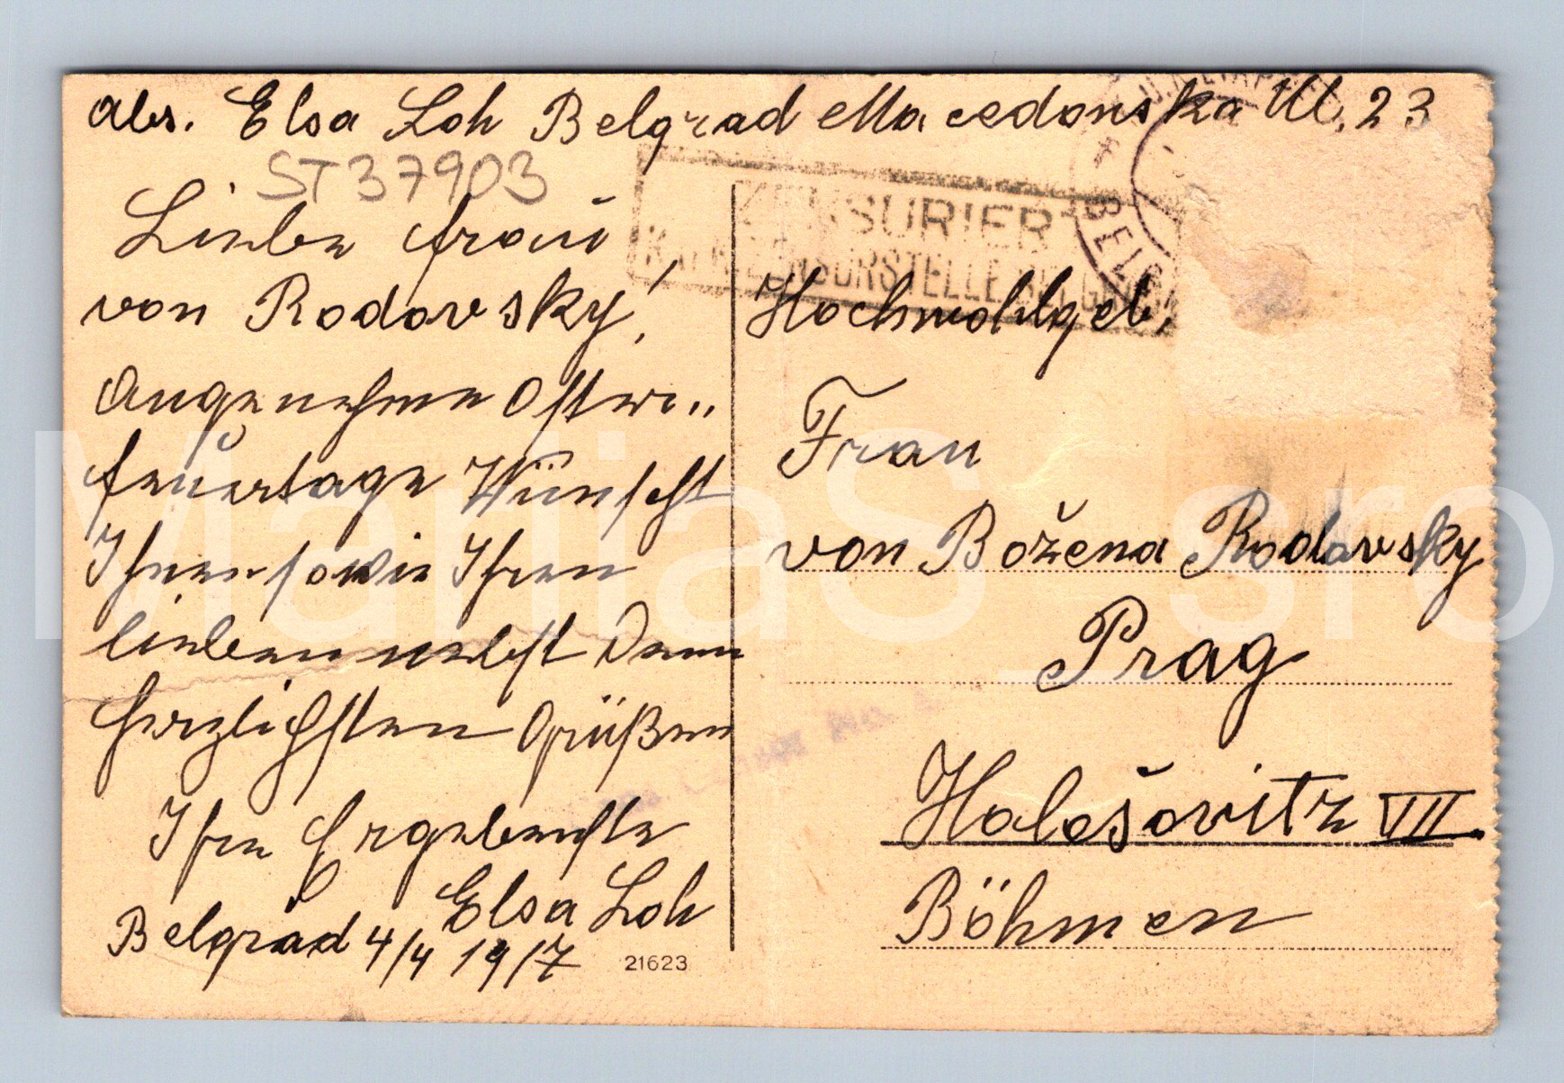 Abs. Elsa Loh Belgrad Macedonska Ul. 23
ST37903
Liebe Frau
von Rodovsky!
Angenehme Oster-
feuertage Wünscht
Ihnen sowie Ihren
lieben nebst den
herzlichsten Grüßen
Ihre Ergebenste
Elsa Loh
Belgrad 4/4 1917
21623
ZENSURIERT
ZENSURSTELLE BELGRAD
Hochwohlgeb,
Frau
von Božena Rodovsky
Prag
Holešovitz VII.
Böhmen
MariaS_sro